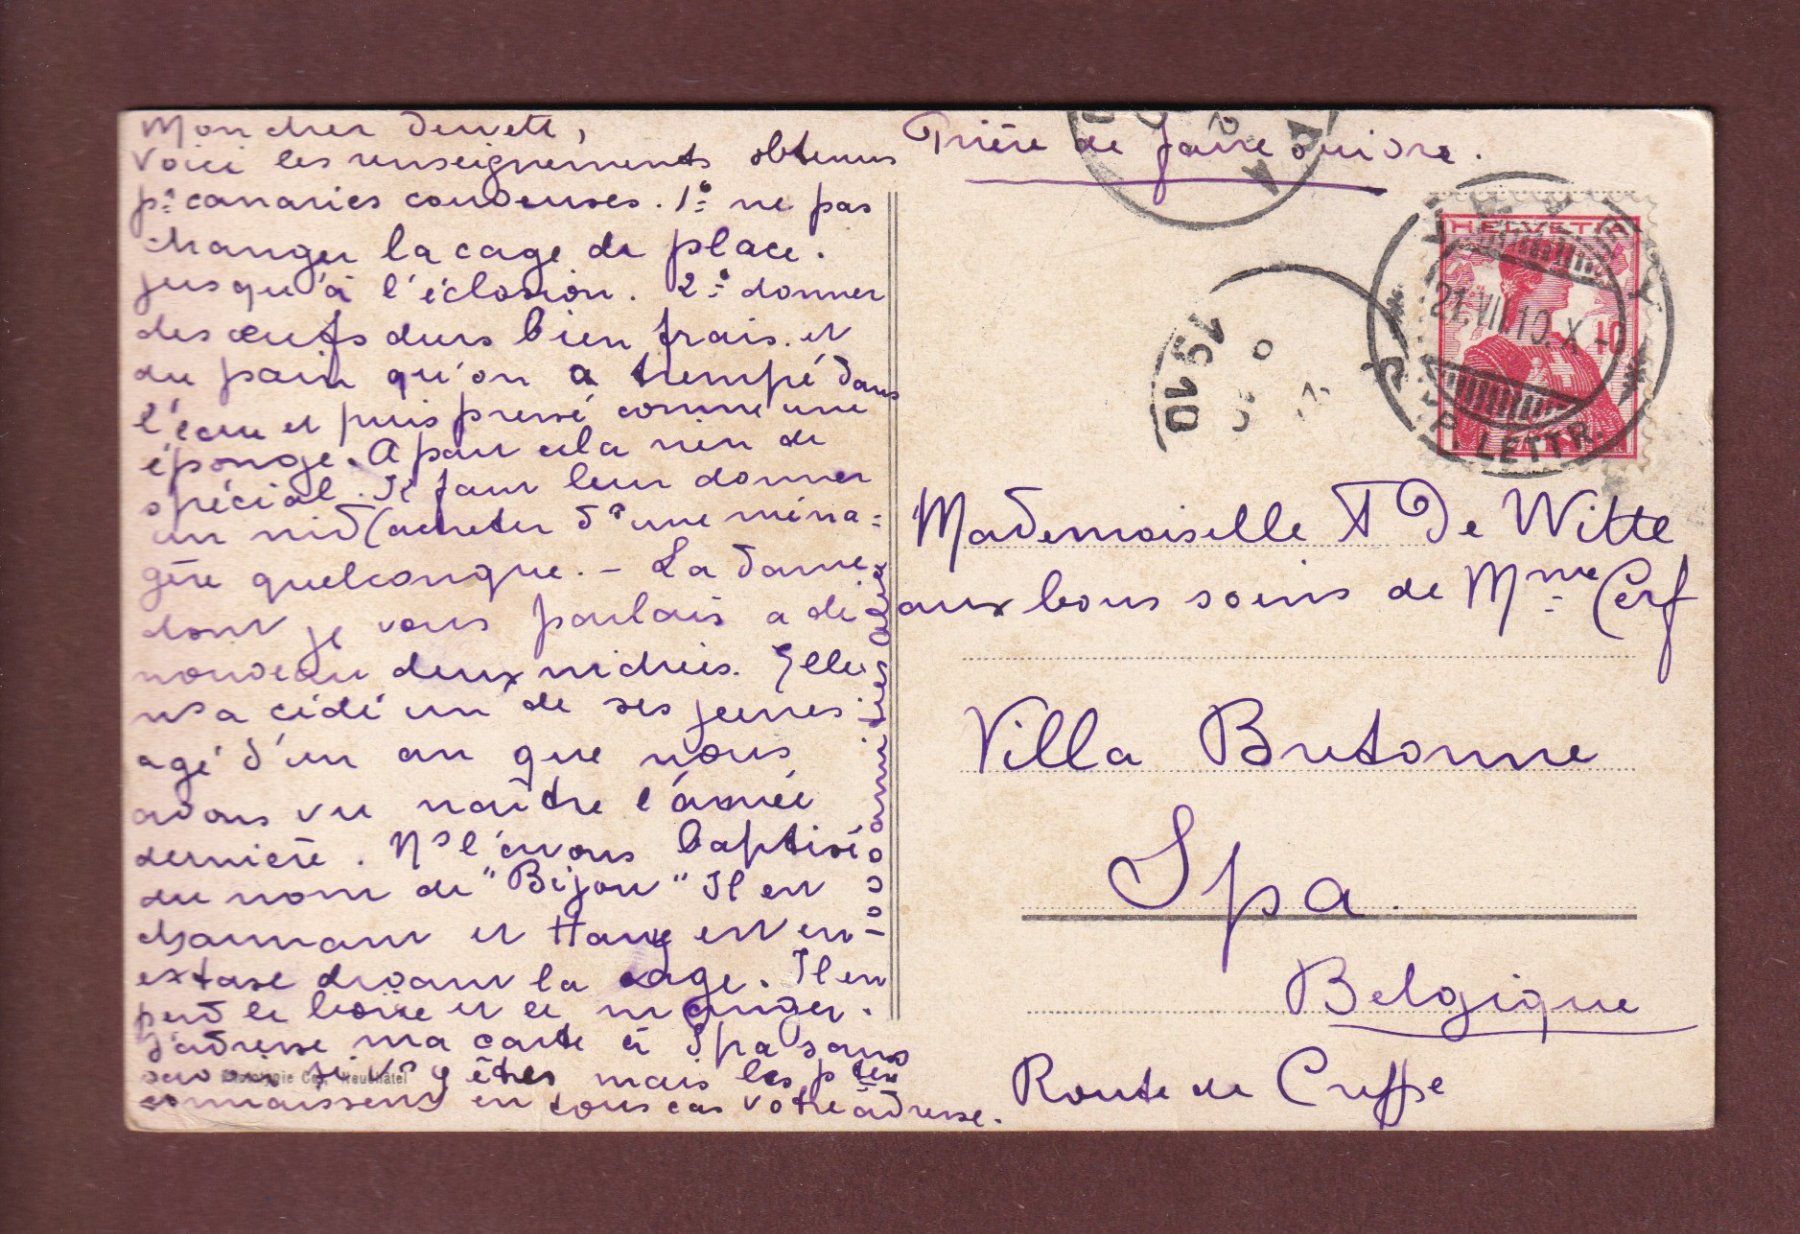 Mon cher
Voici les renseignements obtenus
pr canaries couveuses. 1º ne pas
changer la cage de place.
jusqu'à l'éclosion. 2º donner
des œufs durs bien frais. et
du pain qu'on a trempé dans
l'eau et puis pressé comme une
éponge. A part cela rien de
spécial. Il faut leur donner
un nid (acheter d'une ména=
gère quelconque. – La dame
dont je vous parlais a de
nouveau deux nichées. Elle
ns a cédé un de ses jeunes
agé d'un an que nous
avons vu naître l'année
dernière. Ns l'avons baptisé
du nom de "Bijou" Il est
charmant et est en-
extase devant la cage. Il en
perd le boire et le manger.
J'adresse ma carte à Spa sans
savoir si vs y êtes mais les
connaissent en tous cas votre adresse.
amitiés
Prière de faire suivre.
Mademoiselle A De Witte
aux bons soins de Mme Cerf
Villa Bretonne
Spa
Belgique
Route de Creppe
HELVETIA
10
VEVEY
21.VII.10.X
EXP. LETTR.
15
1910